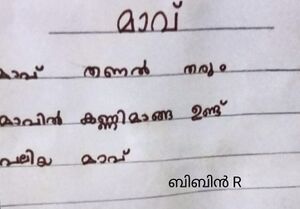 മാവ്
മാവ് തണൽ തരും
മാവിൽ കണ്ണിമാങ്ങ ഉണ്ട്
വലിയ മാവ്
ബിബിൻ R